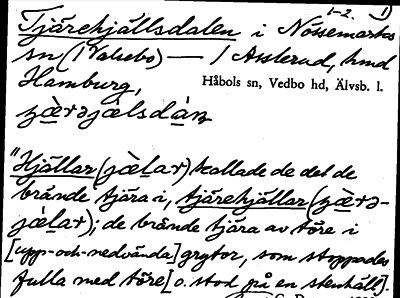 1-2. 1)
Tjärehjällsdalen i Nössemarks
sn (i Valsebo) — / Assterud, hmd
Hamburg, Håbols sn, Vedbo hd, Älvsb. l.
"Hjällar (jæ̀lar) kallade de det de
brände tjära i, tjärehjällar
de brände tjära av töre i
[upp-och-nedvända] grytor, som stoppades
fulla med töre [o. stod på en stenhäll].